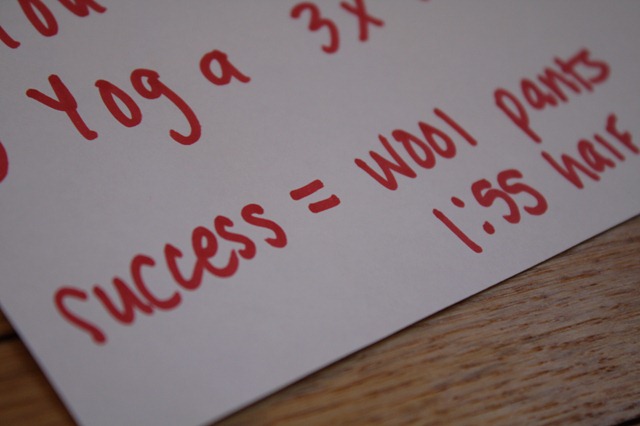 Yoga 3x
success = wool pants
1:55 half